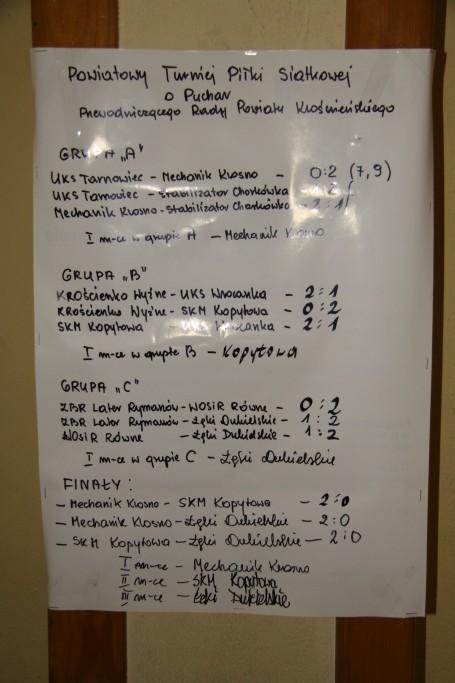 Powiatowy Turniej Piłki Siatkowej
o Puchar
Przewodniczącego Rady Powiatu Krośnieńskiego
GRUPA „A"
UKS Tarnowiec - Mechanik Krosno - 0:2 (7,9)
UKS Tarnowiec - Stabilizator Chorkówka
Mechanik Krosno - Stabilizator Chorkówka - 2:1
I m-ce w grupie A - Mechanik Krosno
GRUPA „B"
KROścienko Wyżne - UKS Wrocanka - 2:1
KROścienko Wyżne - SKM Kopytowa - 0:2
SKM Kopytowa - UKS Wrocanka - 2:1
I m-ce w grupie B - Kopytowa
GRUPA „C"
ZBR Later Rymanów - WOSiR Równe - 0:2
ZBR Later Rymanów - Łęki Dukielskie - 1:2
WOSiR Równe - Łęki Dukielskie - 1:2
I m-ce w grupie C - Łęki Dukielskie
FINAŁY:
- Mechanik Krosno - SKM Kopytowa - 2:0
- Mechanik Krosno - Łęki Dukielskie - 2:0
- SKM Kopytowa - Łęki Dukielskie - 2:0
I m-ce - Mechanik Krosno
II m-ce - SKM Kopytowa
III m-ce - Łęki Dukielskie